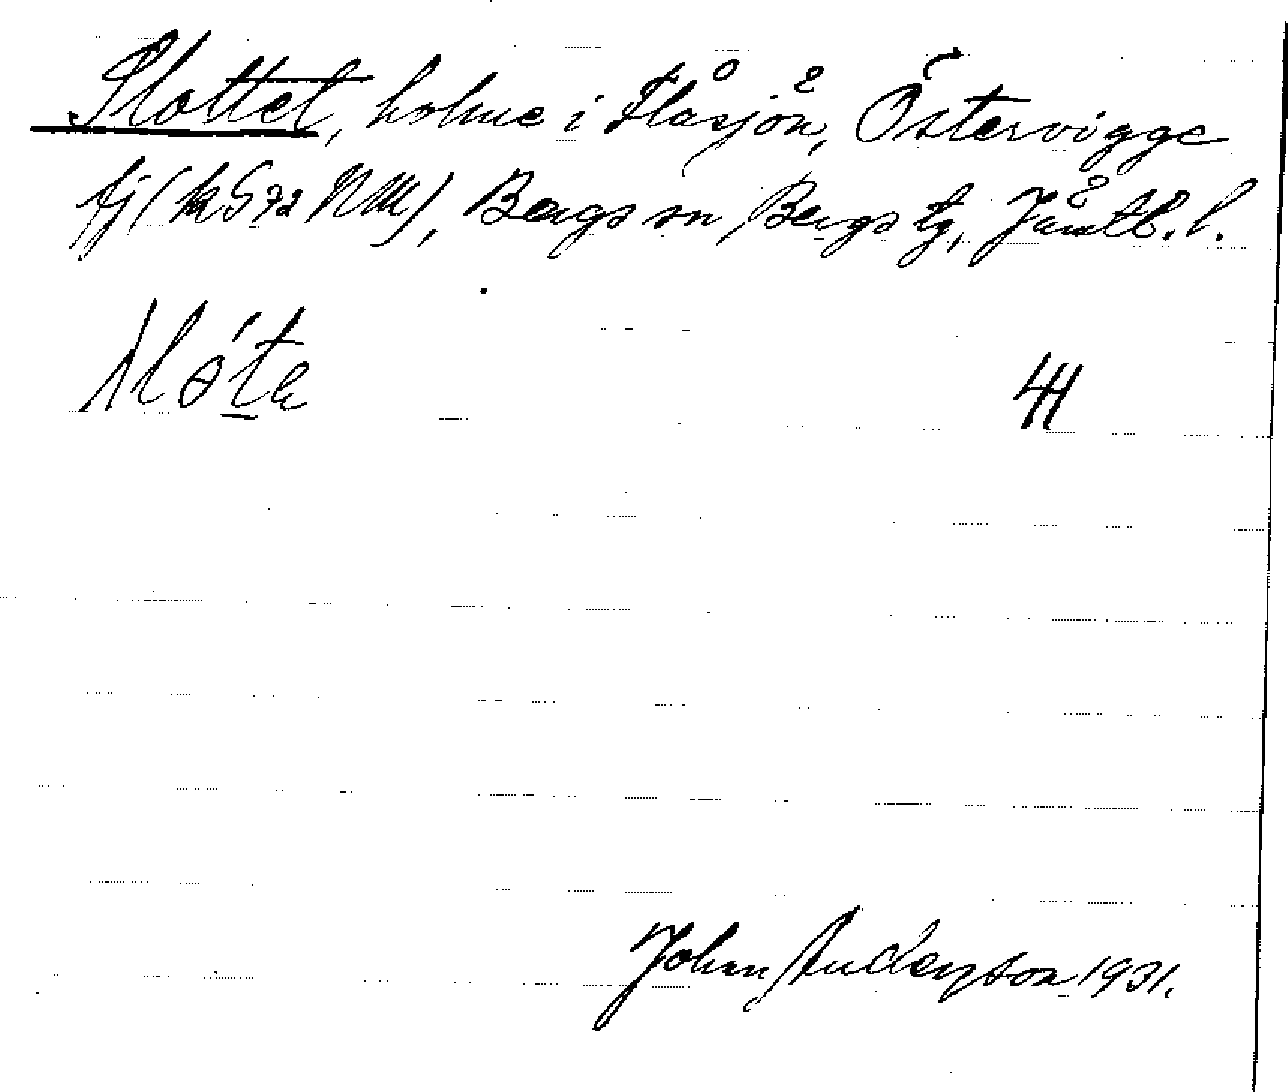 Slottet, holme i Flåsjön, Östervigge
fj (k 572 NM), Bergs sn, Bergs tg, Jämtl. l.
slóte
Johan Andersson 1931.